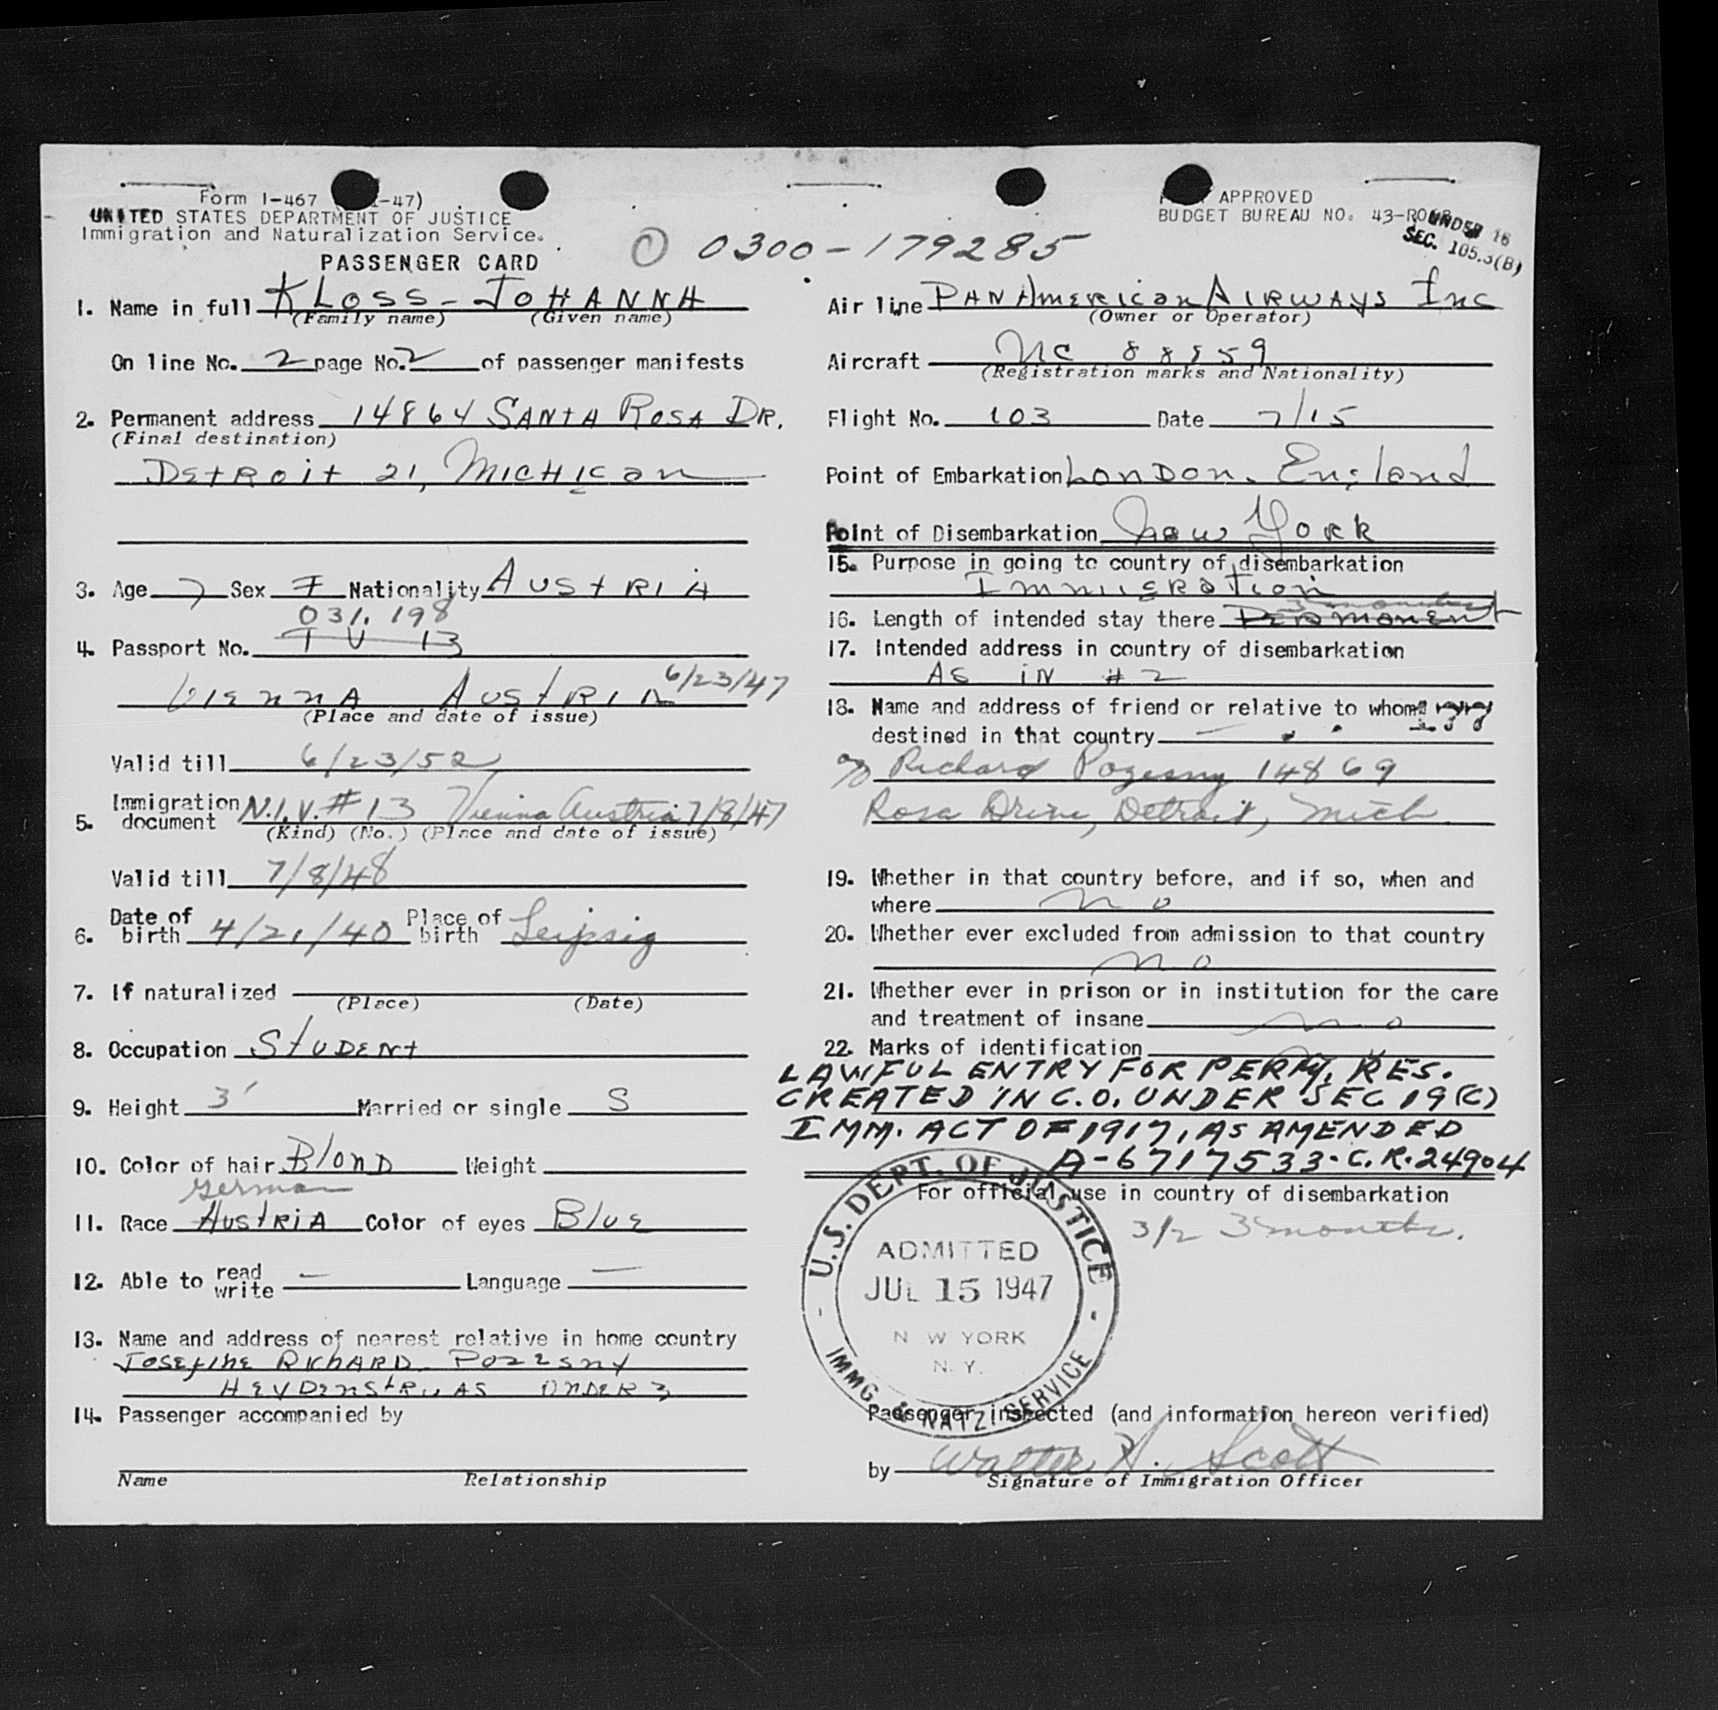 Form I-467 -47)
UNITED STATES DEPARTMENT OF JUSTICE
Immigration and Naturalization Service.
PASSENGER CARD
0300-179285
APPROVED
BUDGET BUREAU NO. 43-R
UNDER 16
SEC. 105.3(B)
1. Name in full KLOSS - JOHANNA
(Family name) (Given name)
On line No. 2 page No. 2 of passenger manifests
2. Permanent address 14864 SANTA ROSA DR.
(Final destination)
DETROIT 21, MICHIGAN
3. Age 7 Sex F Nationality AUSTRIA
031.198
4. Passport No. T U 13
VIENNA AUSTRIA 6/23/47
(Place and date of issue)
Valid till 6/23/52
5. Immigration document N.I.V. # 13 Vienna Austria 7/8/47
(Kind) (No.) (Place and date of issue)
Valid till 7/8/48
6. Date of birth 4/21/40 Place of birth Leipsig
7. If naturalized
(Place) (Date)
8. Occupation STUDENT
9. Height 3' Married or single S
10. Color of hair BLOND Weight
German
11. Race AUSTRIA Color of eyes BLUE
12. Able to read write — Language —
13. Name and address of nearest relative in home country
JOSEFINE RICHARD POZESNY
14. Passenger accompanied by
Name Relationship
Air line PAN AMERICAN AIRWAYS INC
(Owner or Operator)
Aircraft NC 88859
(Registration marks and Nationality)
Flight No. 103 Date 7/15
Point of Embarkation LONDON. England
Point of Disembarkation New York
15. Purpose in going to country of disembarkation
IMMIGRATION
16. Length of intended stay there PERMANENT 3 months
17. Intended address in country of disembarkation
AS IN # 2
18. Name and address of friend or relative to whom
destined in that country —
c/o Richard Pozesny 14869
Rosa Drive, Detroit, Mich
19. Whether in that country before, and if so, when and
where no
20. Whether ever excluded from admission to that country
no
21. Whether ever in prison or in institution for the care
and treatment of insane no
22. Marks of identification
LAWFUL ENTRY FOR PERM. RES.
CREATED IN C.O. UNDER SEC 19(C)
IMM. ACT OF 1917, AS AMENDED
A-6717533-C.R.24904
For official use in country of disembarkation
3/2 3 months.
U.S. DEPT. OF JUSTICE
ADMITTED
JUL 15 1947
N W YORK
N.Y.
IMMG. & NATZ. SERVICE
Passenger inspected (and information hereon verified)
by Walter H. Scott
Signature of Immigration Officer